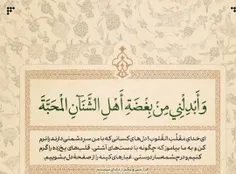 وَأَبْدِلْنِي مِنْ بِغْضَةِ أَهْلِ الشَّنَآنِ الْمَحَبَّةَ
ای خدای مقلب القلوب! دل‌های کسانی که با من سر دشمنی دارند را نرم
کن و به ما بیاموز که چگونه با دست‌های آشتی، قلب‌های یخ‌زده را گرم
کنیم و در چشمه‌سار دوستی، غبارهای کینه را از صفحهٔ دل بشوییم.